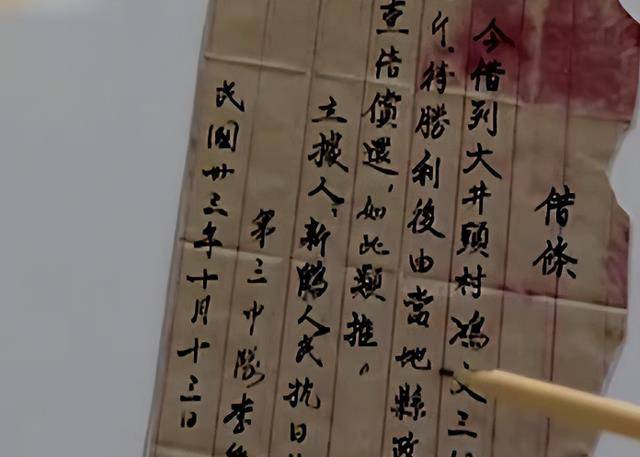 借條
今借到大井頭村鴻文三
斤待勝利後由當地縣政
立據人：新鶴人民抗日
第三中隊李
民國卅三年十月十三日
如此類推。
償還，